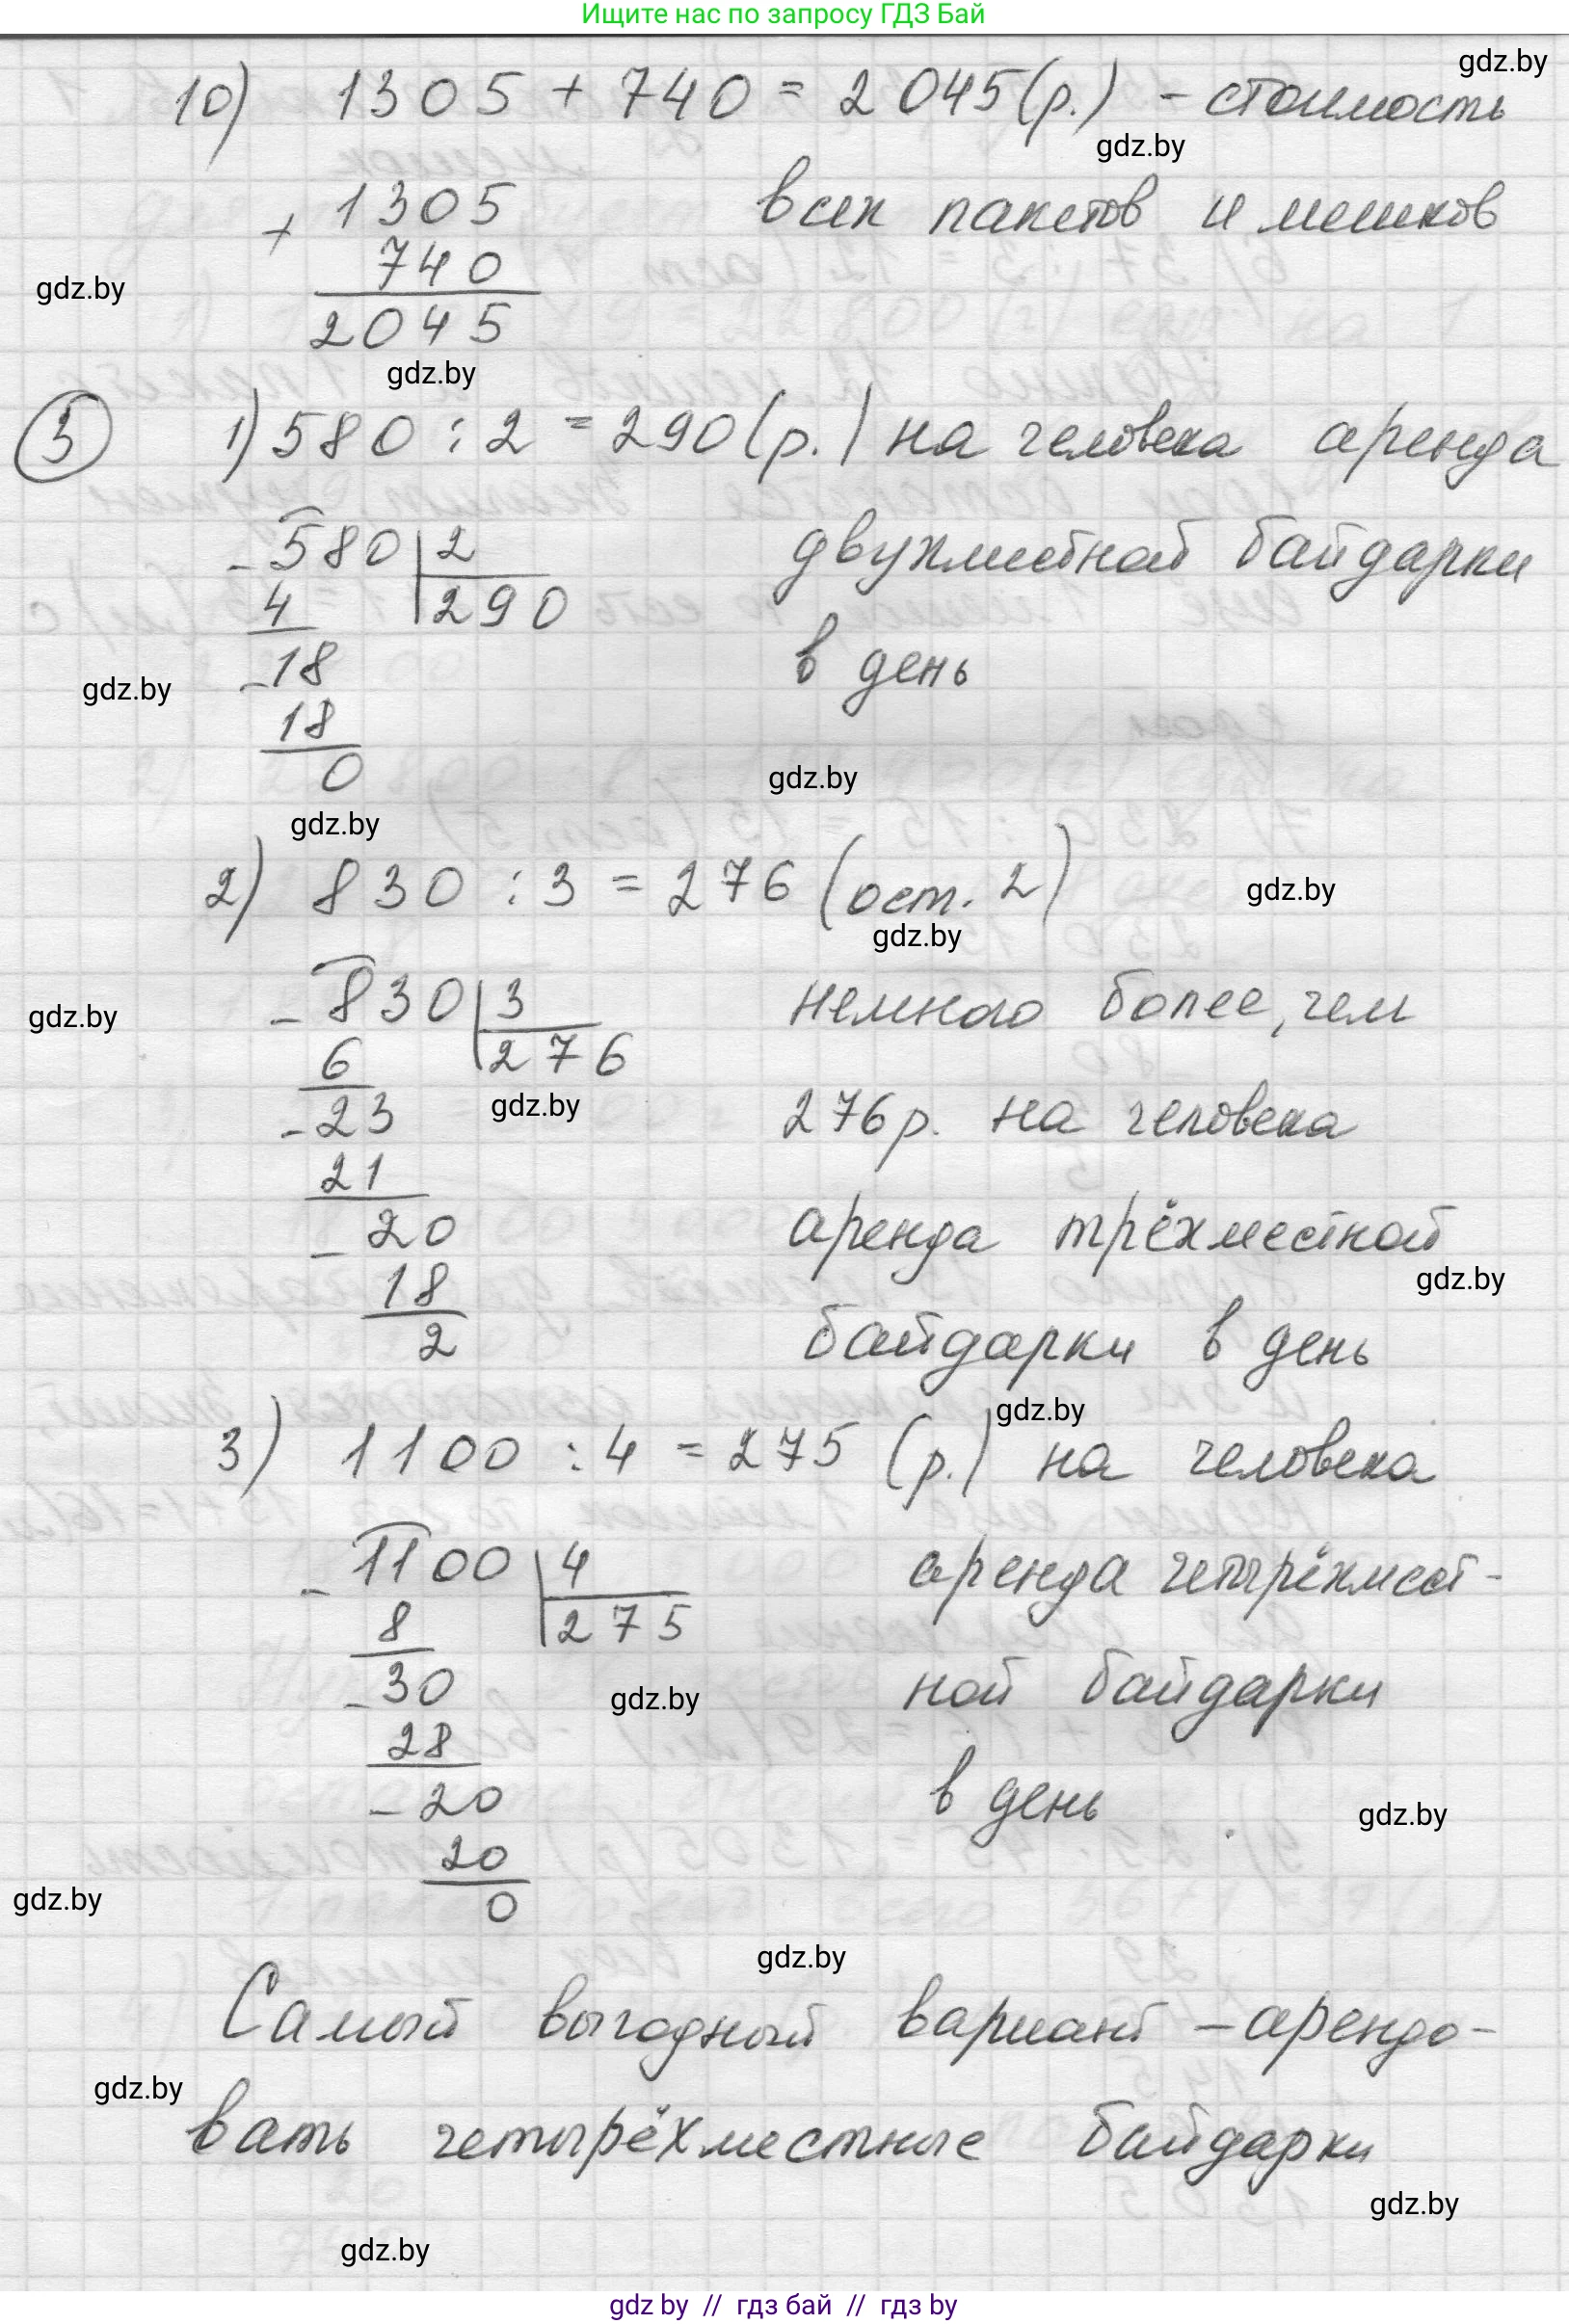 Ищите нас по запросу ГДЗ Бай
gdz.by
10) 1305 + 740 = 2045 (р.) - стоимость
gdz.by
+ 1305 всех пакетов и мешков
740
gdz.by
2045
gdz.by
5 1) 580 : 2 = 290 (р.) на человека аренда
- 580 | 2 двухместной байдарки
4 290
- 18 в день
gdz.by
18
0 gdz.by
gdz.by
2) 830 : 3 = 276 (ост. 2) gdz.by
gdz.by
- 830 | 3 немного более, чем
gdz.by
6 276
- 23 gdz.by 276 р. на человека
21
- 20 аренда трёхместной
gdz.by
18
2 байдарки в день
gdz.by
3) 1100 : 4 = 275 (р.) на человека
- 1100 | 4 аренда четырёхмест-
8 275
- 30 gdz.by ной байдарки
28
- 20 в день gdz.by
20
gdz.by
0
gdz.by
Самый выгодный вариант - арендо-
gdz.by
вать четырёхместные байдарки
gdz.by
gdz.by
gdz.by // гдз бай // гдз by